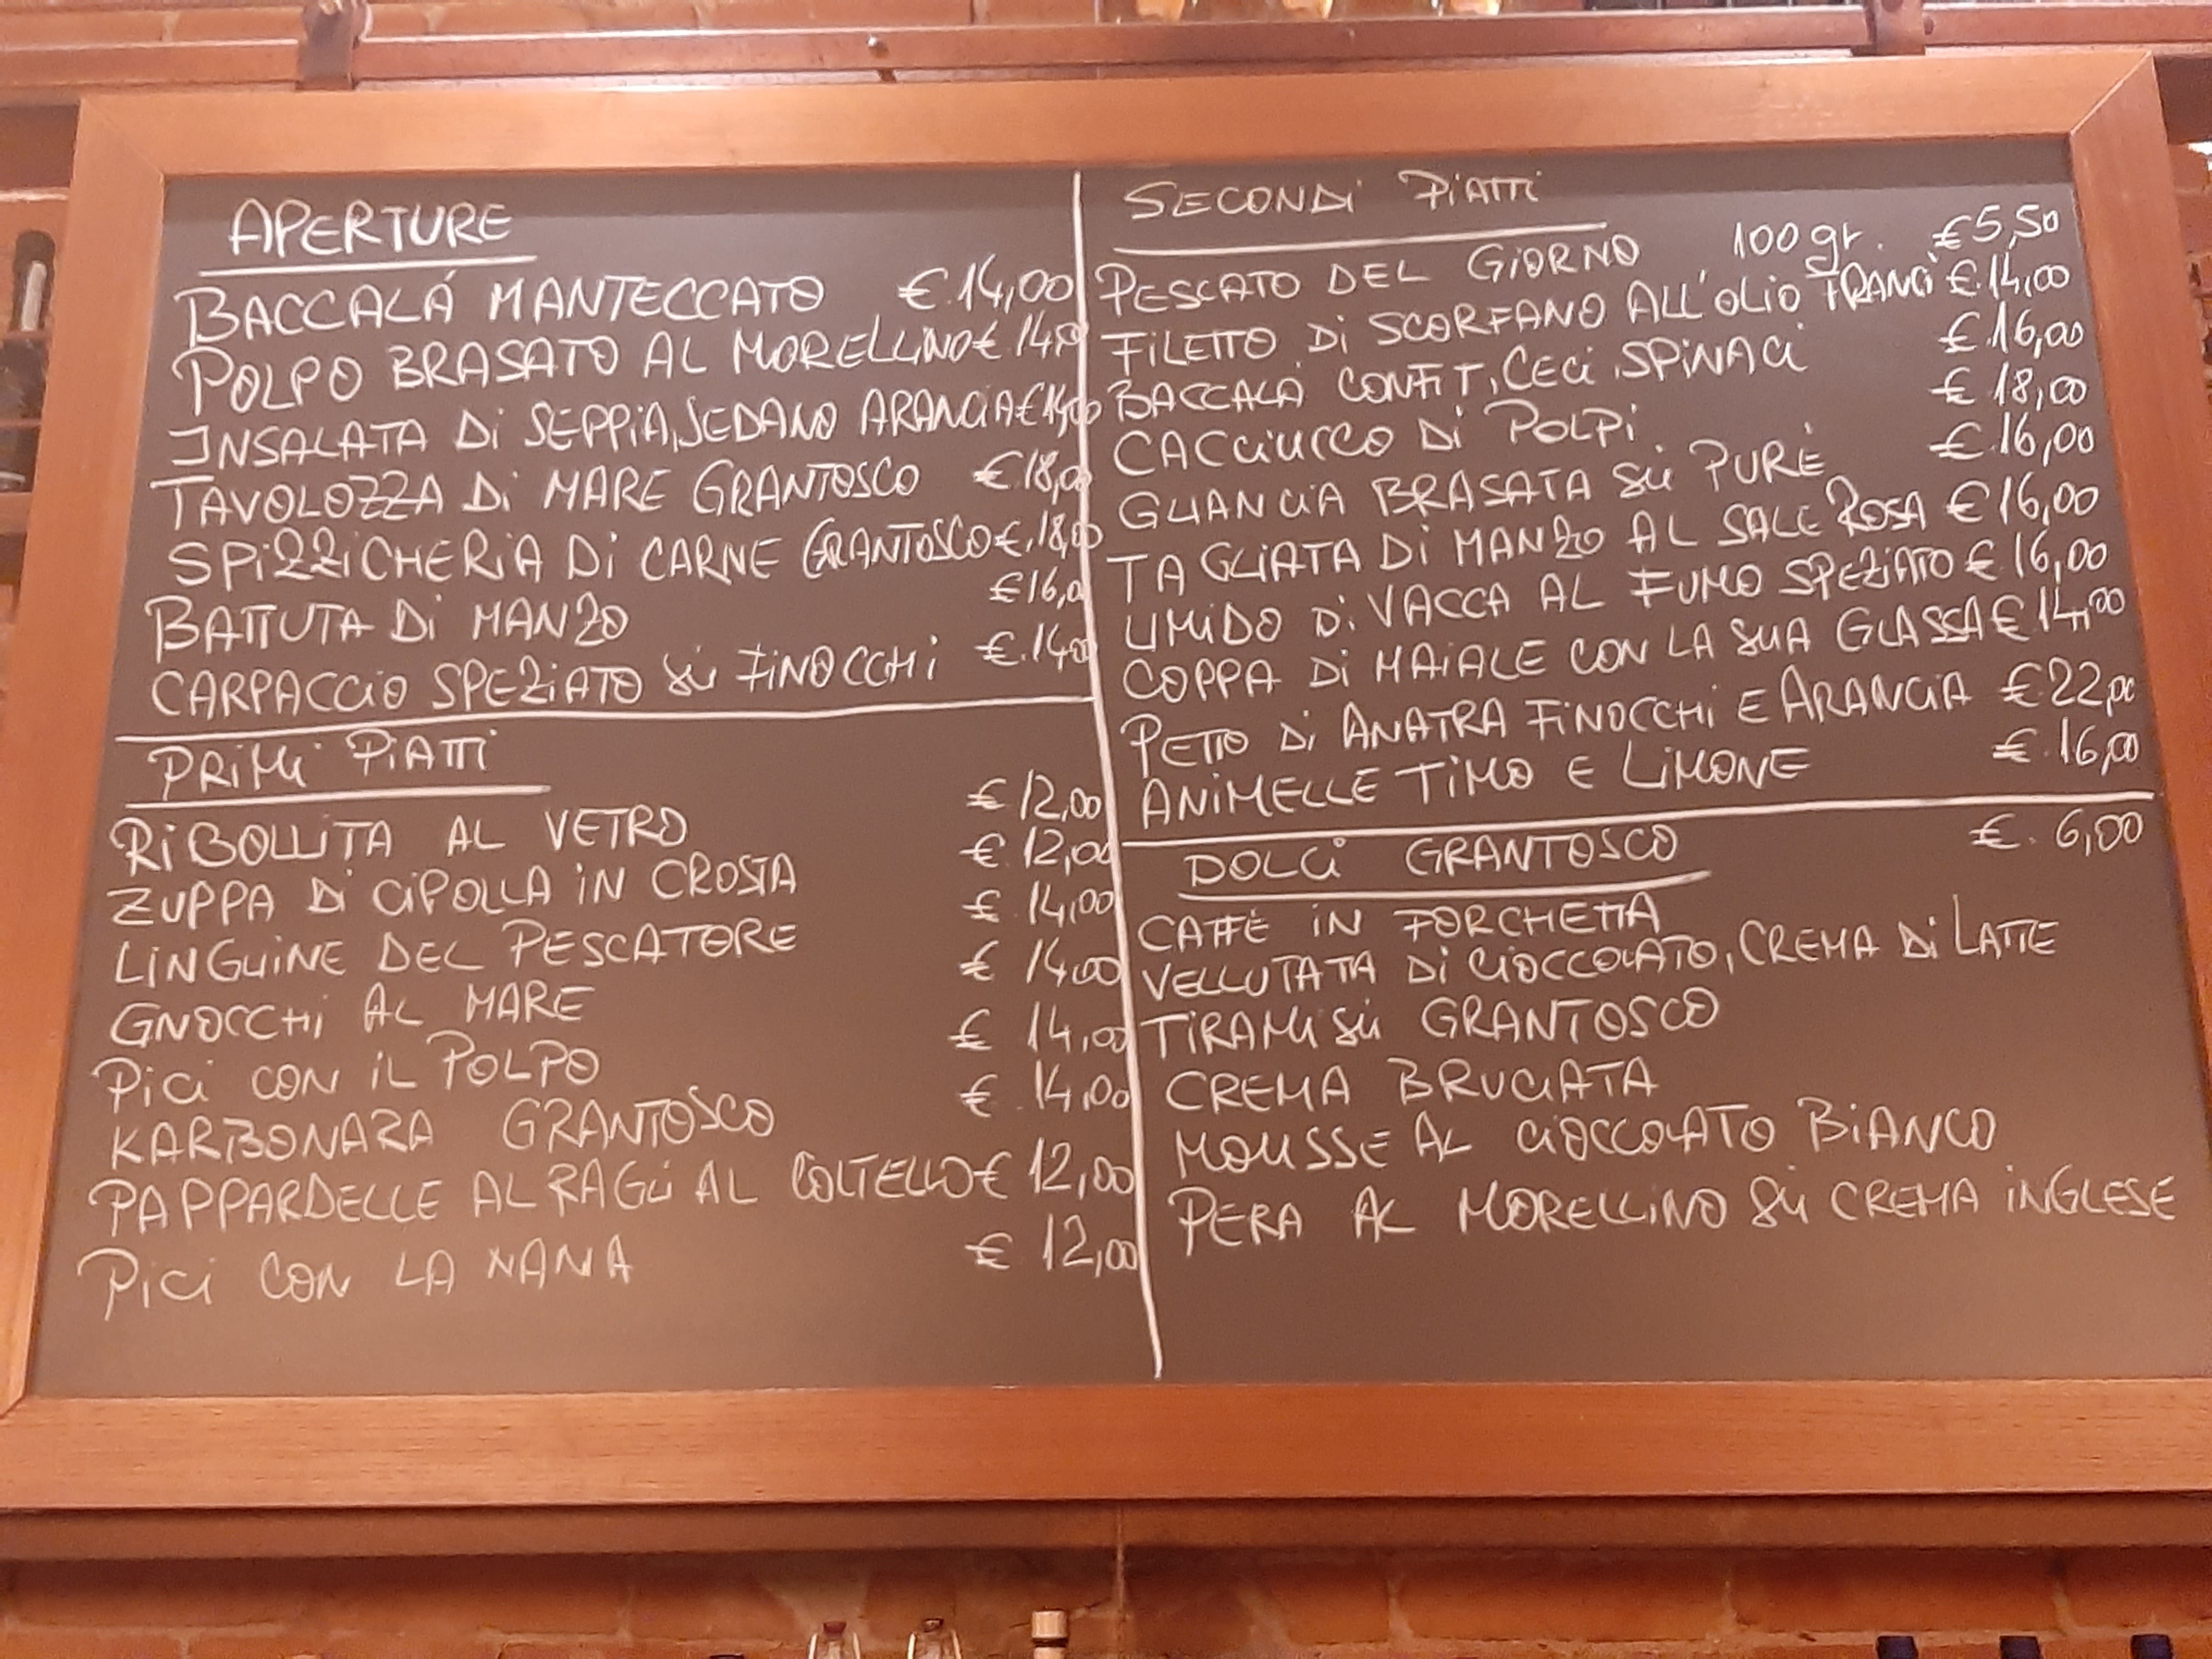 APERTURE
BACCALÁ MANTECCATO €.14,00
POLPO BRASATO AL MORELLINO €14,0
INSALATA Di SEPPiA, SEDANO ARANCiA €14,00
TAVOLOZZA Di MARE GRANTOSCO €18,00
SPiZZiCHERiA Di CARNE GRANTOSCO €.18,00
BATTUTA Di MANZO €16,0
CARPACCiO SPEZiATO Sù FiNOCCHi €.14,00
PRiMi PiATTi
RiBOLLiTA AL VETRO €12,00
ZUPPA Di CiPOLLA iN CROSTA €.12,00
LiNGUiNE DEL PESCATORE €.14,00
GNOCCHi AL MARE €14,00
PiCi CON iL POLPO €14,00
KARBONARA GRANTOSCO €.14,00
PAPPARDELLE AL RAGù AL COLTELLO €12,00
PiCi CON LA NANA €12,00
SECONDi PiATTi
PESCATO DEL GiORNO 100 gr. €5,50
FiLETTO Di SCORFANO ALL'OLiO FRANCi €.14,00
BACCALÀ CONFiT, CECi, SPiNACi €.16,00
CACCiUCCO Di POLPi €18,00
GUANCiA BRASATA Sù PURÈ €.16,00
TAGLiATA Di MANZO AL SALE ROSA €16,00
UMiDO Di VACCA AL FUMO SPEZiATO €16,00
COPPA Di MAiALE CON LA SUA GLASSA €14,00
PETTO Di ANATRA FiNOCCHi E ARANCiA €22,00
ANiMELLE TiMO E LiMONE €.16,00
DOLCi GRANTOSCO €. 6,00
CAFFÈ iN FORCHETTA
VELLUTATA Di CiOCCOLATO, CREMA Di LATTE
TiRAMiSù GRANTOSCO
CREMA BRUCiATA
MOUSSE AL CiOCCOLATO BiANCO
PERA AL MORELLiNO Sù CREMA iNGLESE